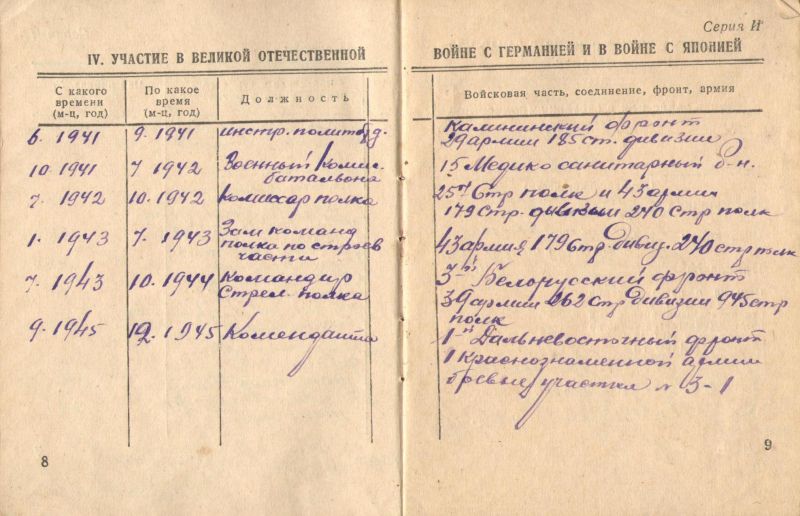 IV. УЧАСТИЕ В ВЕЛИКОЙ ОТЕЧЕСТВЕННОЙ
С какого
времени
(м-ц, год)
По какое
время
(м-ц, год)
Должность
6. 1941 9. 1941 инстр. политотд.
10. 1941 7 1942 Военный комис.
батальона
7. 1942 10. 1942 комиссар полка
1. 1943 7. 1943 Зам команд
полка по строев
части
7. 1943 10. 1944 Командир
Стрел. полка
9. 1945 12. 1945 Коменданта
8
Серия И
ВОЙНЕ С ГЕРМАНИЕЙ И В ВОЙНЕ С ЯПОНИЕЙ
Войсковая часть, соединение, фронт, армия
Калининский фронт
29 армии 185 ст. дивизии
15 Медико санитарный б-н.
Стр полк и 43 армии
179 Стр. дивизии 240 Стр полк
43 армия 179 Стр. дивиз. 240 стр полк
3й Белорусский фронт
39 армии 262 Стр дивизии 945 стр
полк
1й Дальневосточный фронт
1 Краснознаменной армии
боевые участки № 3-1
9